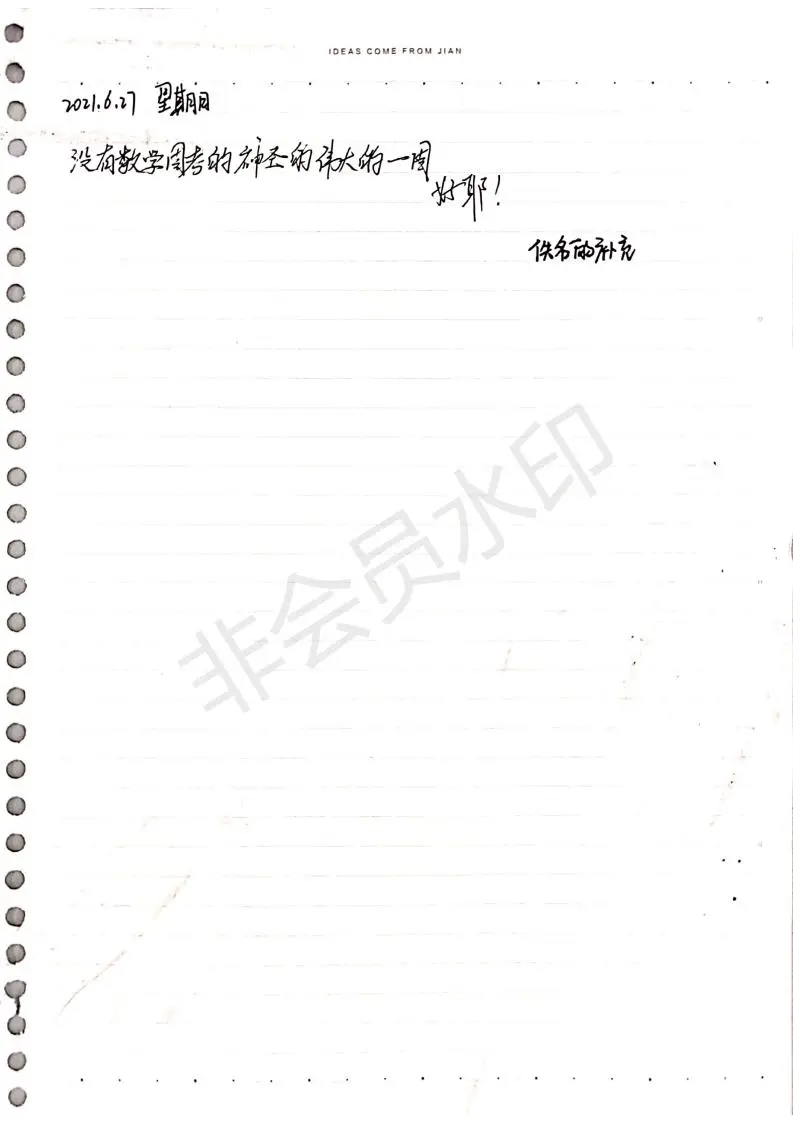 IDEAS COME FROM JIAN
2021.6.27 星期日
没有数学周考的神圣的伟大的一周
好耶！
佚名的补充
非会员水印